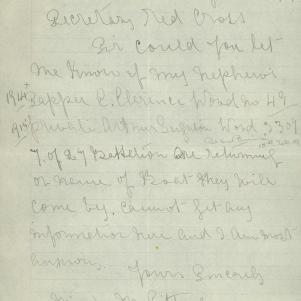 Secretary Red Cross
Sir could you let
me know if my nephews
1914 Sapper E. Clarence Wood no 49
1915 Private Arthur Eugten Wood 3307
7. of 27 Battalion are returning
or name of Boat they will
come by. Cannot get any
information here and I am most
anxious.
Yours Sincerely